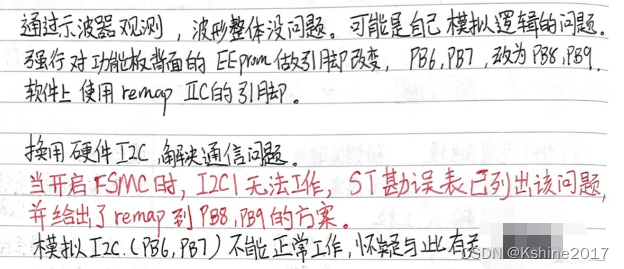 通过示波器观测，波形整体没问题。可能是自己模拟逻辑的问题。
强行对功能板背面的EEprom做引脚改变，PB6,PB7，改为PB8,PB9.
软件上使用remap IIC的引脚。
换用硬件I2C，解决通信问题。
当开启FSMC时，I2C1无法工作，ST勘误表已列出该问题，
并给出了remap到PB8,PB9的方案。
模拟I2C.(PB6,PB7)不能正常工作，怀疑与此有关
CSDN @Kshine2017